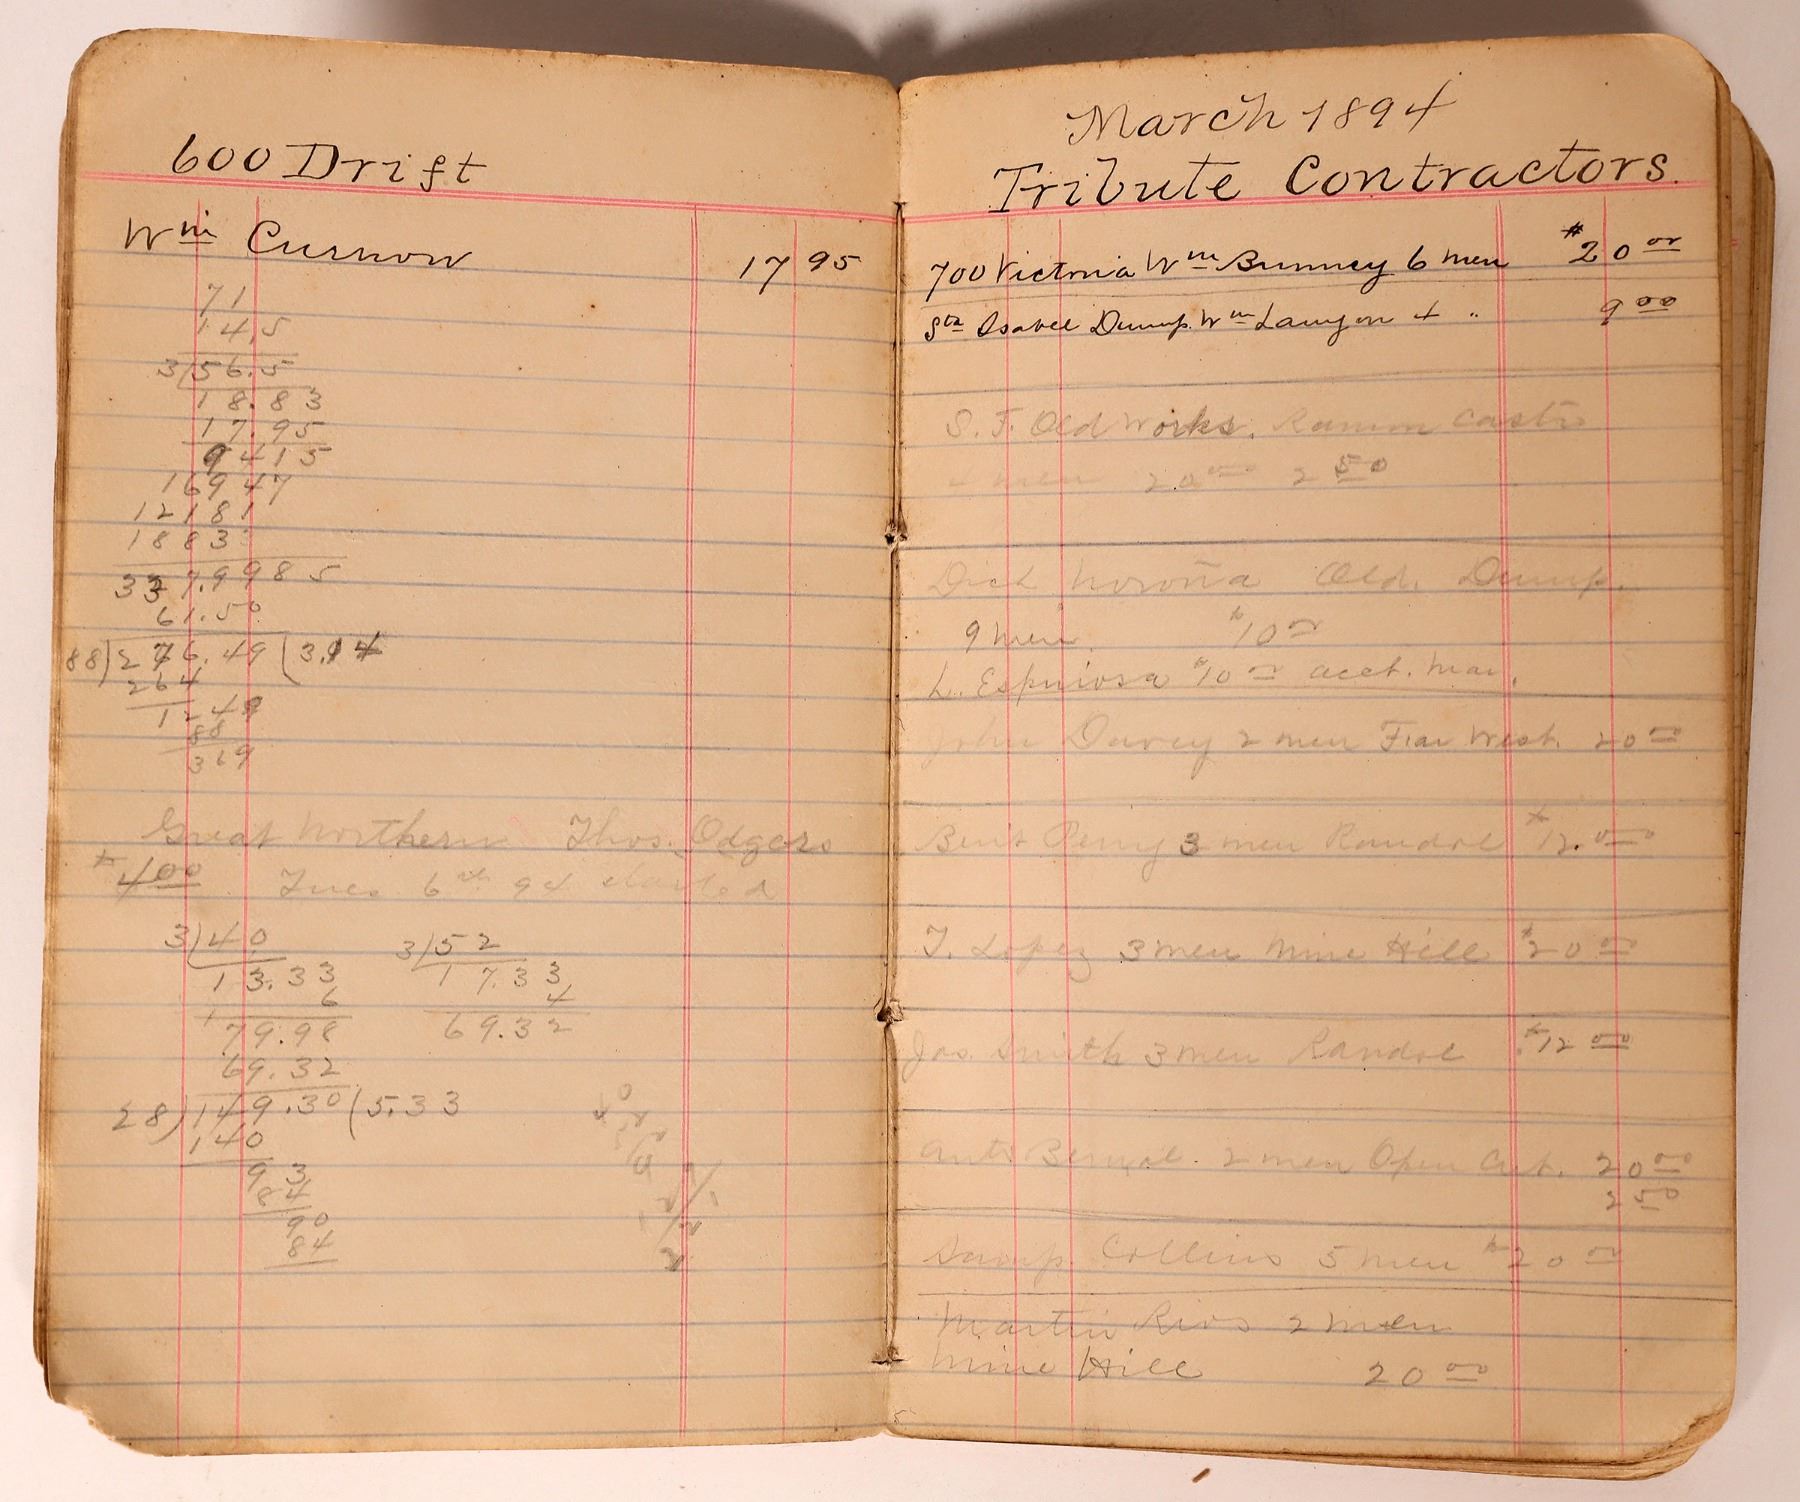 600 Drift
Wm Curnow 17 95
71
14.5
3/56.5
18.83
17.95
9415
16947
12181
1883
337.9985
61.50
88)276.49(3.14
264
1249
88
369
Great Northern Thos. Odgers
$400 Tues 6th 94 started
3)40
13.33
6
79.98
69.32
28)149.30(5.33
140
93
84
90
84
3/52
17.33
4
69.32
March 1894
Tribute Contractors.
700 Victoria Wm Bunney 6 men $20 00
Sta Isabel Dump. Wm Lanyon 4 " 9 00
S. F. Old Works. Ramon Castro
4 men 20 00 2 50
Dick Noroña Old. Dump.
9 men $10 00
L. Espinosa $10 00 acct. Mar.
John Davey 2 men Far West. 20 00
Benj Perry 3 men Randol $12.00
T. Lopez 3 men Mine Hill $20 00
Jos. Smith 3 men Randol $12 00
2 men Open Cut. 20 00
2 50
Samp. Collins 5 men $20 00
Martin Rios 2 men
Mine Hill 20 00